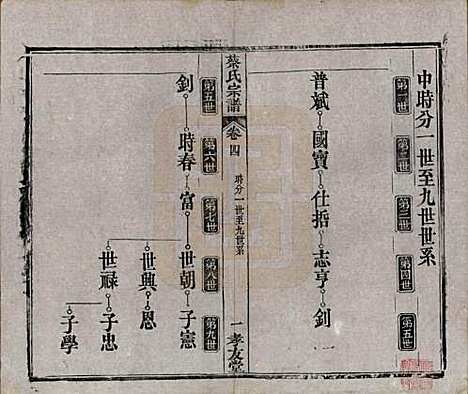 中時分一世至九世世系
第一世
第二世
第三世
第四世
第五世
普斌 國寶 仕哲 志亨 釗
蔡氏宗譜
卷四
時分一世至九世系
一 孝友堂
第五世
第六世
第七世
第八世
第九世
釗 時春 富 世朝 子憲
世興 恩
世祿 子忠
子學